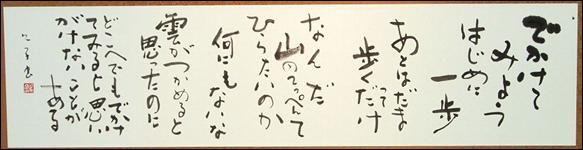 でかけて
みよう
はじめに
一歩
あとはだまって
歩くだけ
なんだ
山のてっぺんて
ひらたいのか
何にもないな
雲がつかめると
思ったのに
どこへでもでかけ
てみると思い
がけないことが
ある